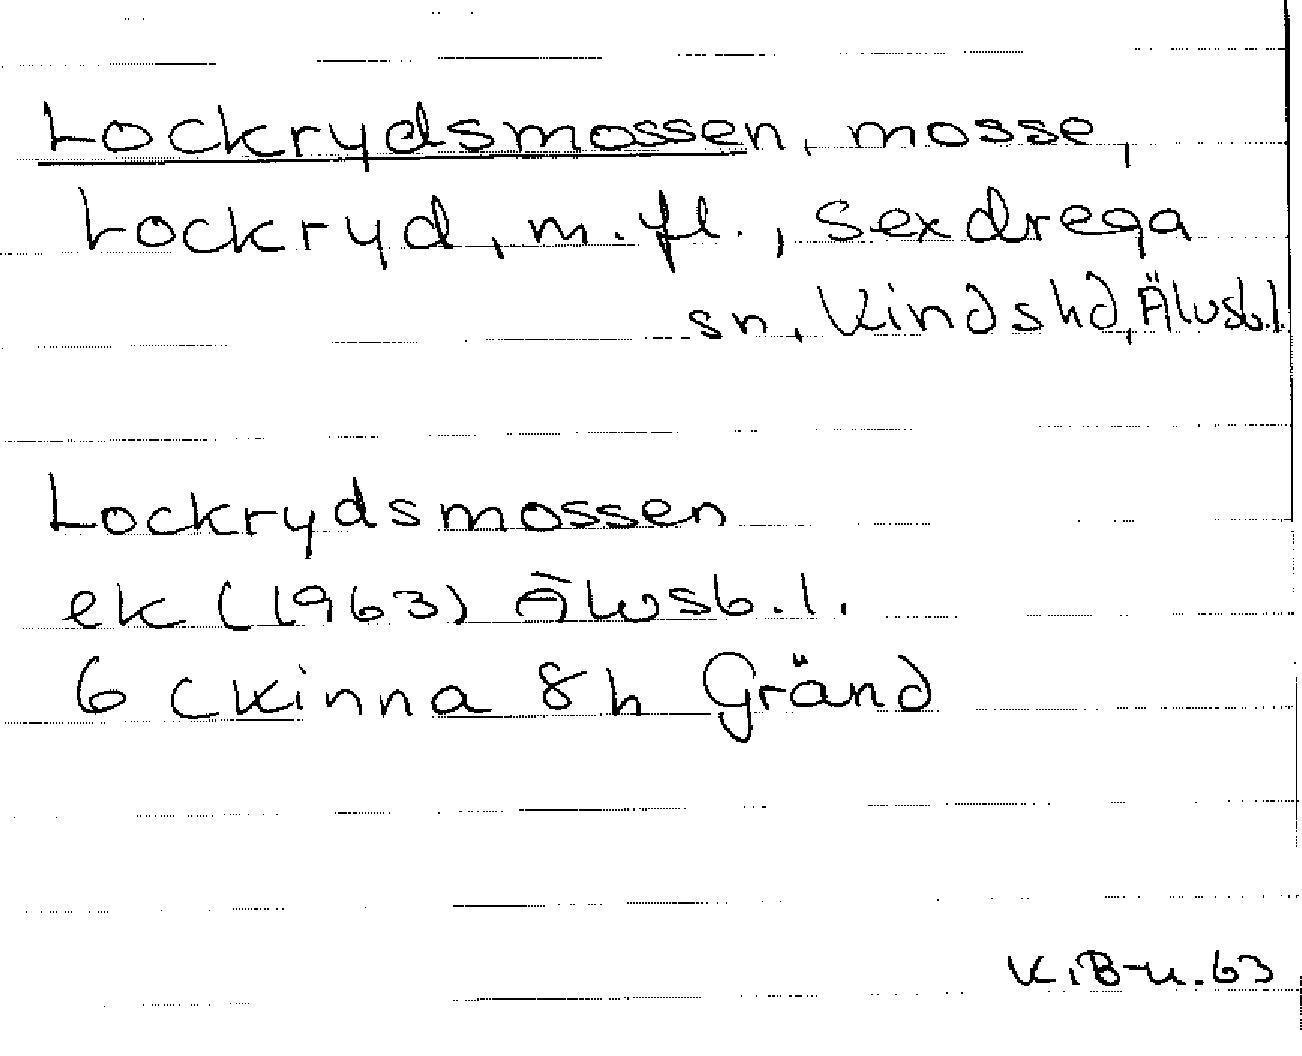 Lockrydsmossen, mosse,
Lockryd, m.fl., Sexdrega
sn, Kinds hd, Älvsb.l.
Lockrydsmossen
ek (1963) Älvsb.l.
6 C Kinna 8 h Gränd
K.B-n.63